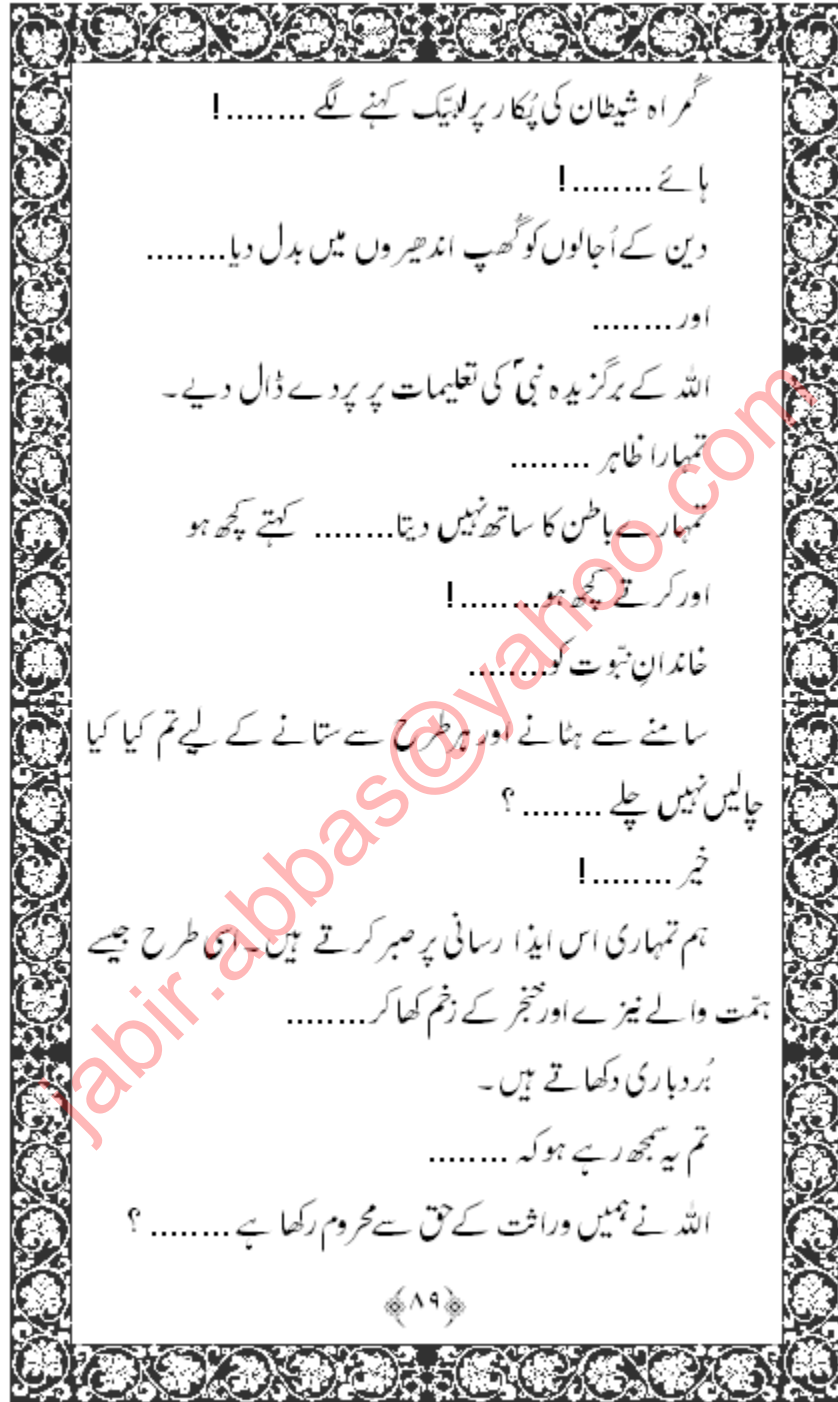 گُمراہ شیطان کی پُکار پر لبّیک کہنے لگے ........!
ہائے ........!
دین کے اُجالوں کو گُھپ اندھیروں میں بدل دیا........
اور ........
اللہ کے برگزیدہ نبیؐ کی تعلیمات پر پردے ڈال دیے۔
تمہارا ظاہر ........
تمہارے باطن کا ساتھ نہیں دیتا........ کہتے کچھ ہو
اور کرتے کچھ ہو ........!
خاندانِ نبّوت کو ........
سامنے سے ہٹانے اور ہر طرح سے ستانے کے لیے تم کیا کیا
چالیں نہیں چلے ........ ؟
خیر ........!
ہم تمہاری اس ایذا رسانی پر صبر کرتے ہیں۔ اسی طرح جیسے
ہمّت والے نیزے اور خنجر کے زخم کھا کر ........
بُردباری دکھاتے ہیں۔
تم یہ سمجھ رہے ہو کہ ........
اللہ نے ہمیں وراثت کے حق سے محروم رکھا ہے ........ ؟
﴿۸۹﴾
jabir.abbas@yahoo.com